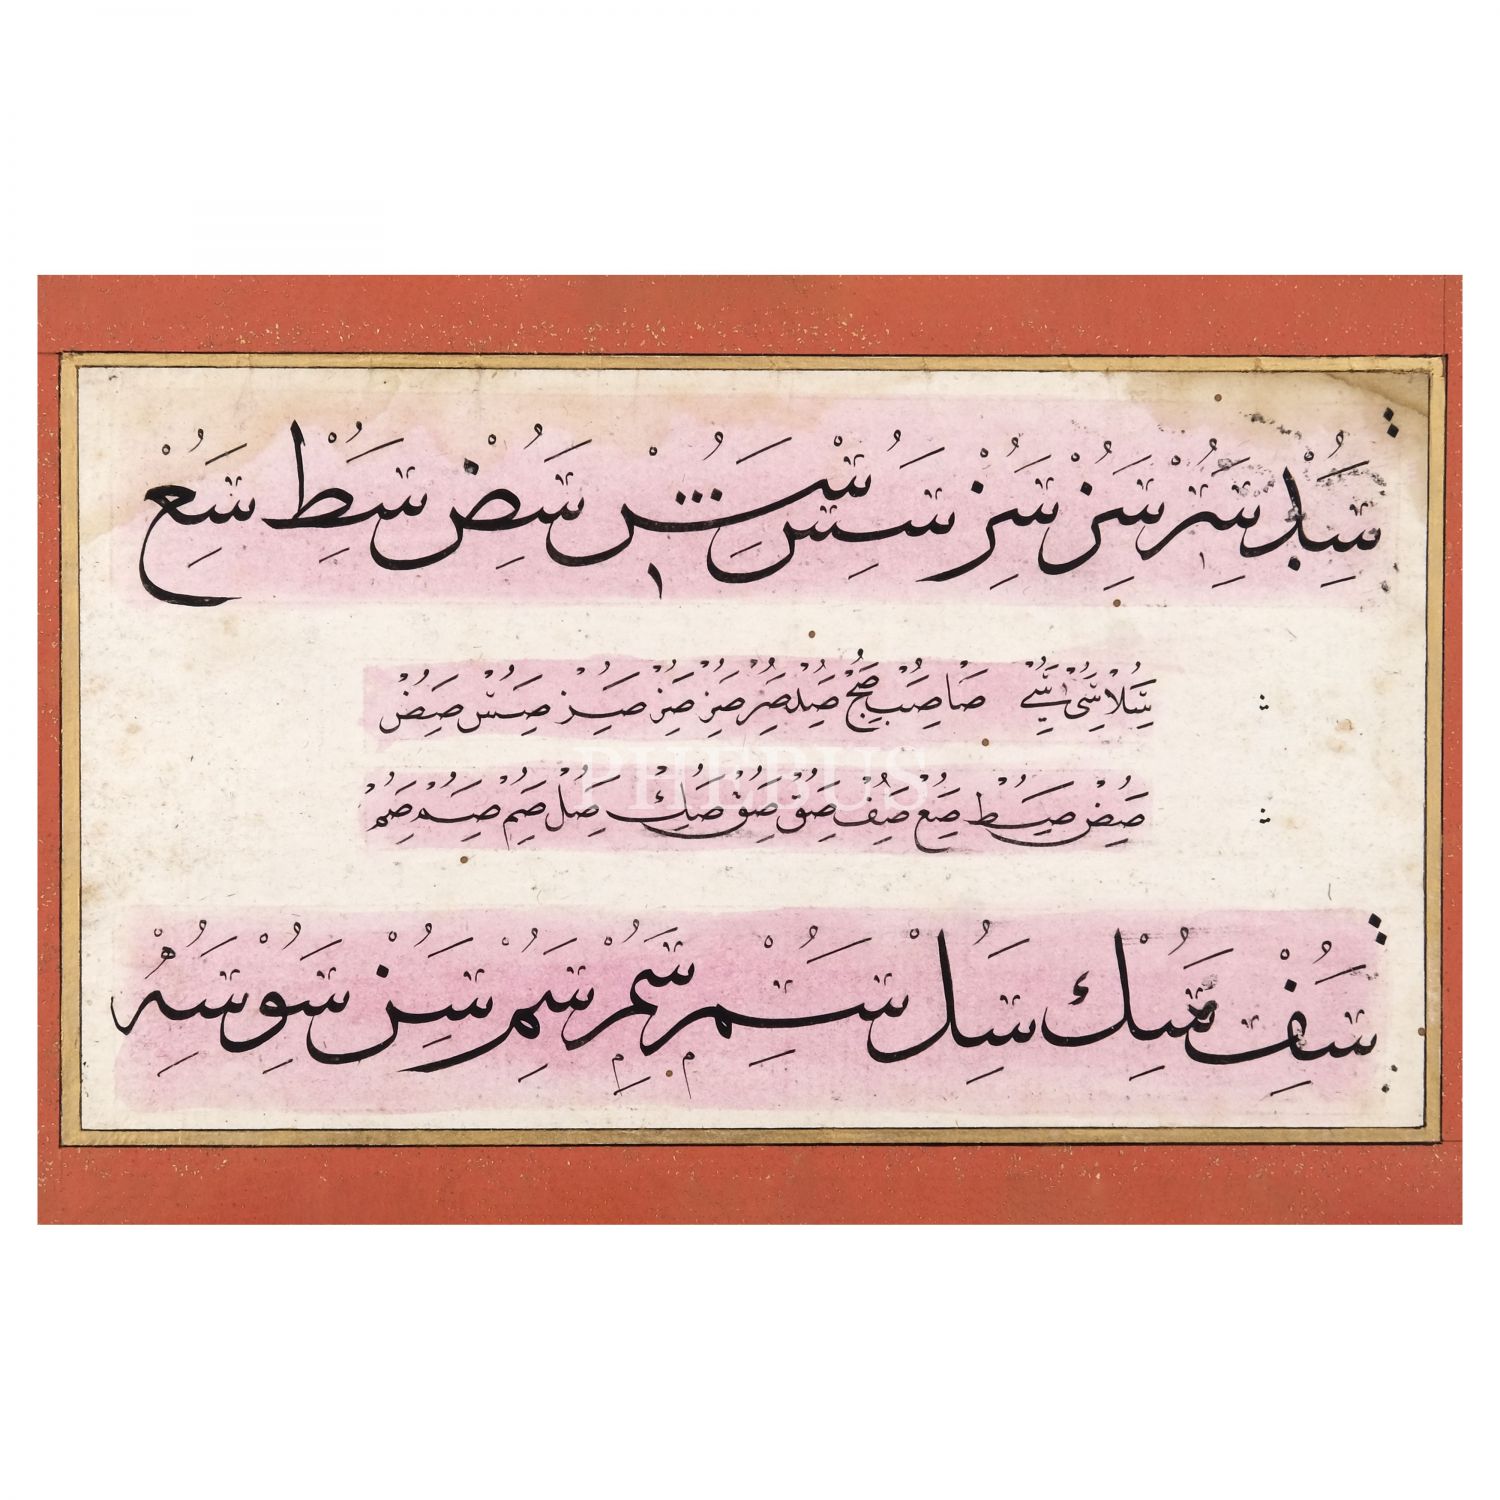 سد سر سز سز سس سش سض سط سع
سلا سى سے صا صب صح صد صر صز صز صز صس صض
صض صط صع صف صق صق صك صل صم صم صم
سف سك سل سم سم سم سن سو سه
PHEBUS